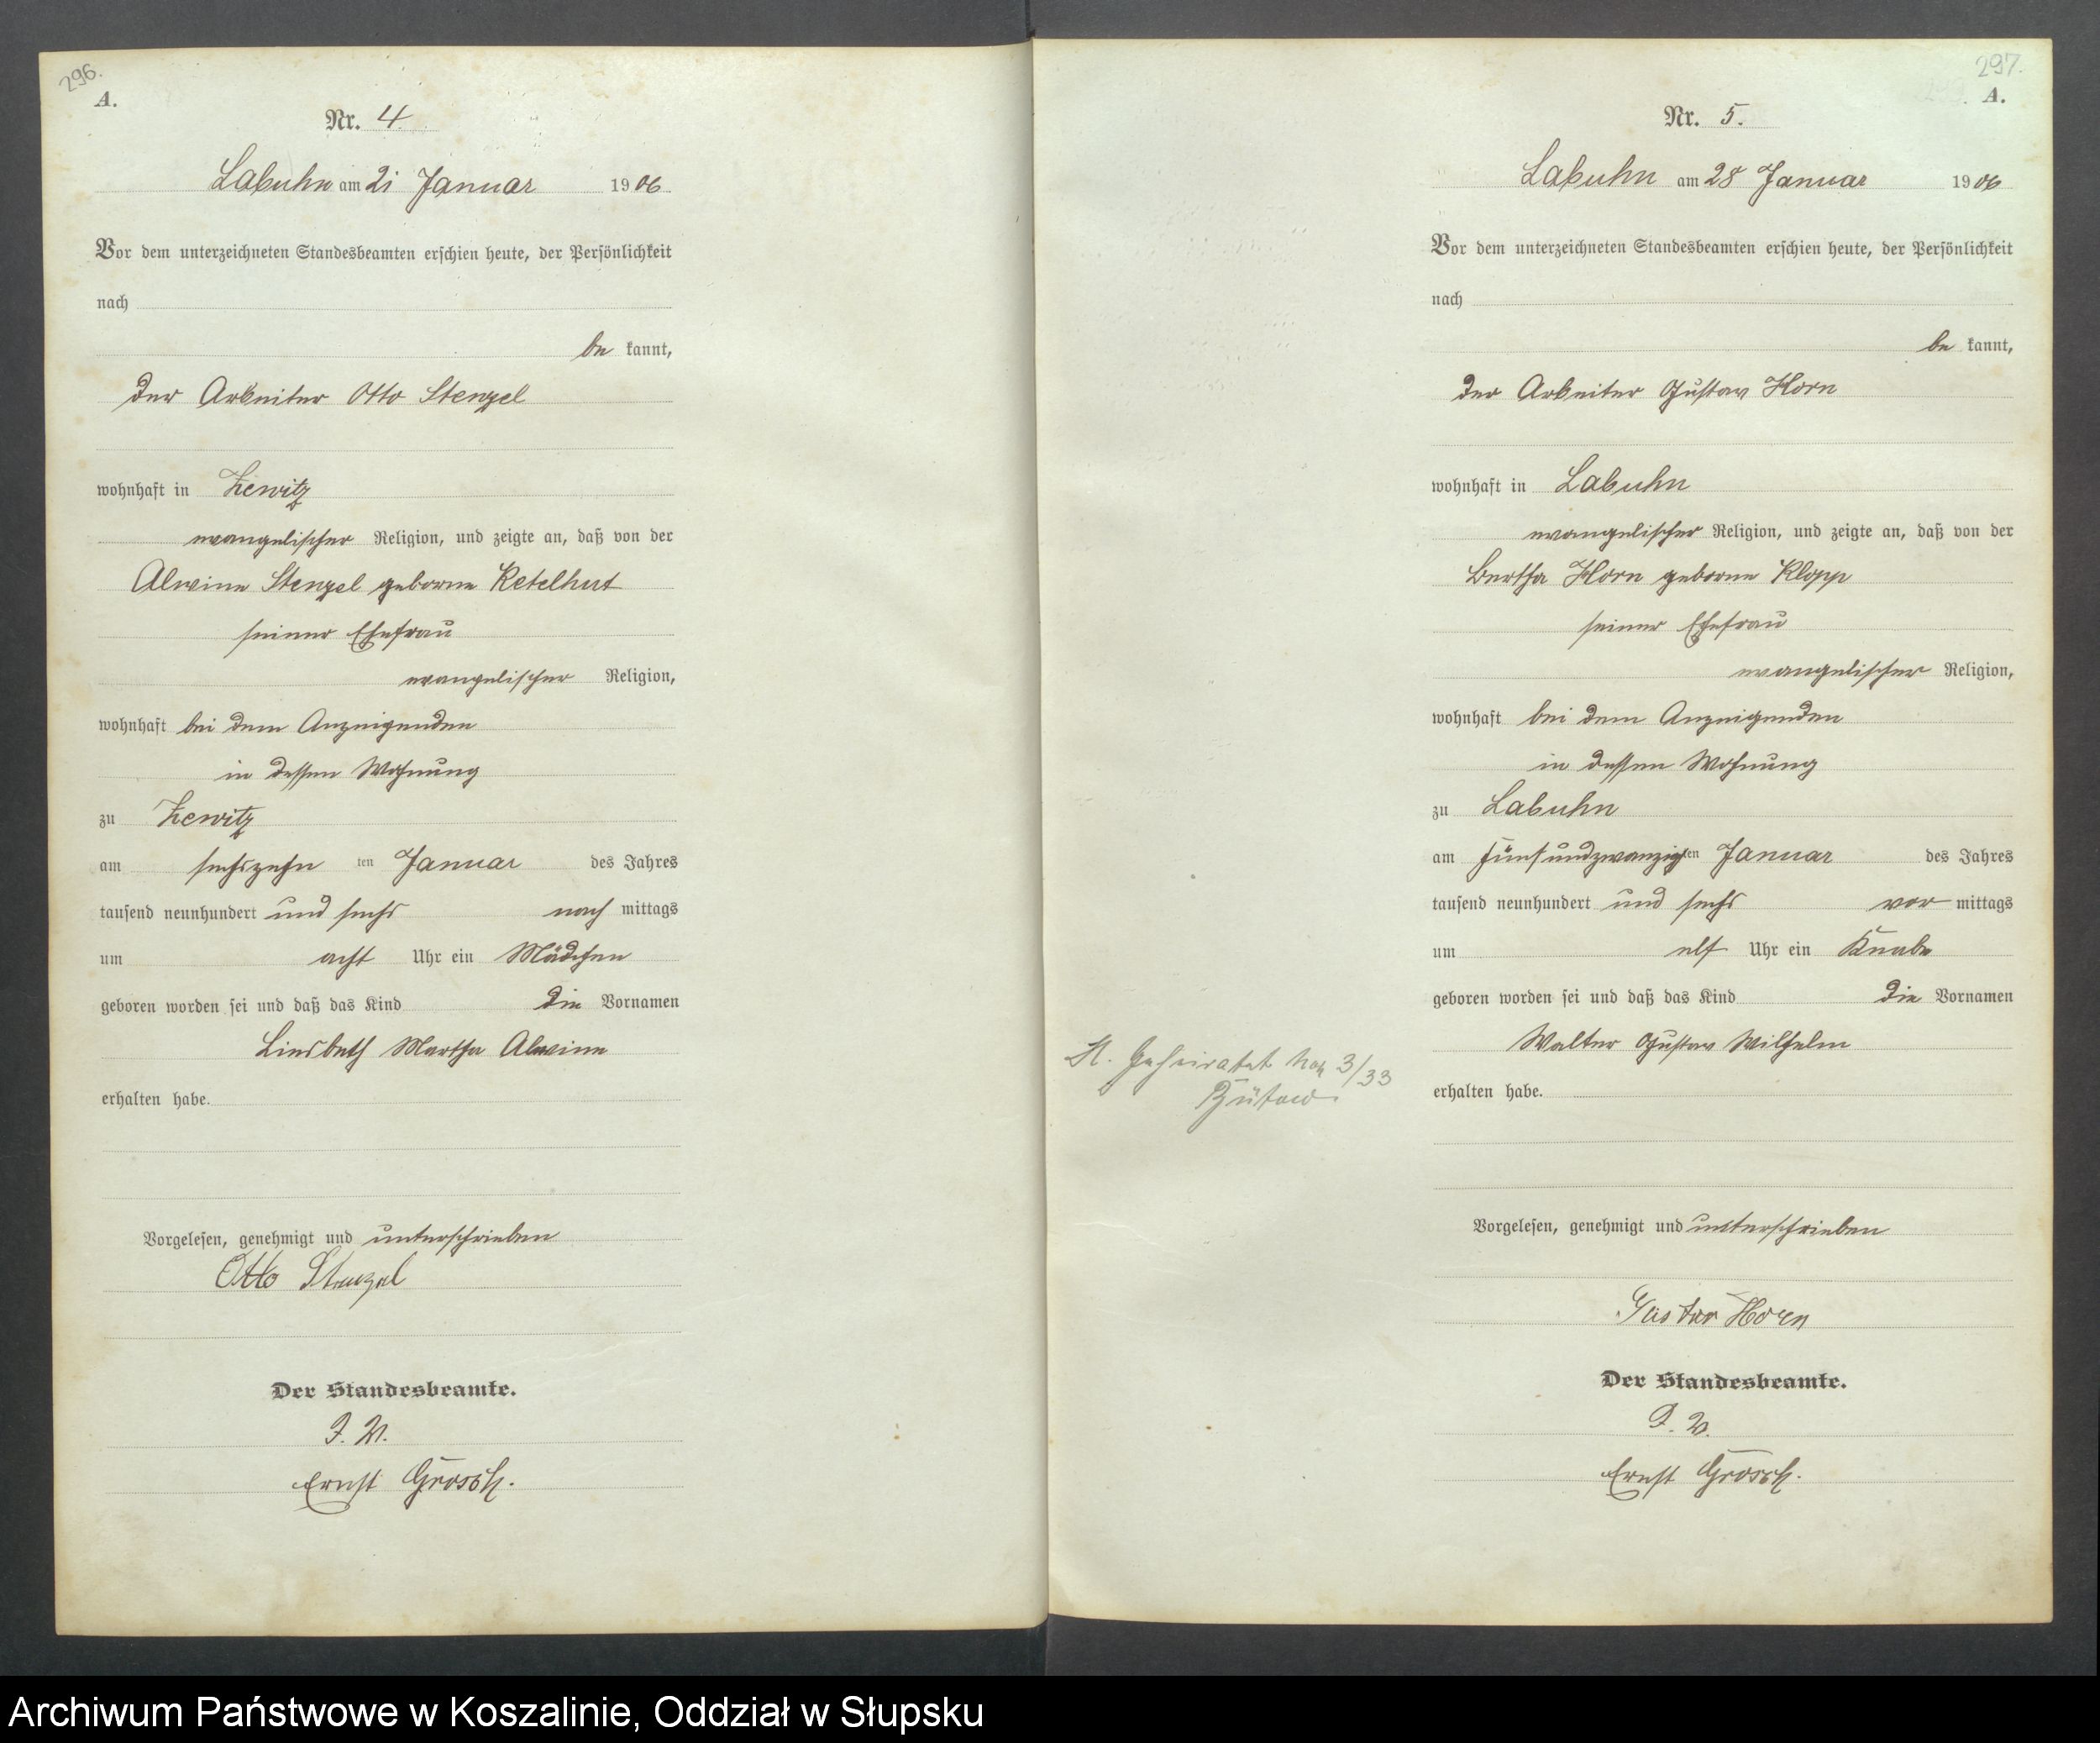 296.
A.
Nr. 4.
Labuhn am 21 Januar 1906.
Vor dem unterzeichneten Standesbeamten erschien heute, der Persönlichkeit
nach
be kannt,
der Arbeiter Otto Stenzel
wohnhaft in Zewitz
evangelischer Religion, und zeigte an, daß von der
Alwine Stenzel geborne Retelhut
seiner Ehefrau
evangelischer Religion,
wohnhaft bei dem Anzeigenden
in dessen Wohnung
zu Zewitz
am sechszehn ten Januar des Jahres
tausend neunhundert und sechs nach mittags
um acht Uhr ein Mädchen
geboren worden sei und daß das Kind die Vornamen
Liesbeth Martha Alwine
erhalten habe.
Vorgelesen, genehmigt und unterschrieben
Otto Stenzel
Der Standesbeamte.
I. V.
Ernst Grosch.
297.
A.
Nr. 5.
Labuhn am 28 Januar 1906
Vor dem unterzeichneten Standesbeamten erschien heute, der Persönlichkeit
nach
be kannt,
der Arbeiter Gustav Horn
wohnhaft in Labuhn
evangelischer Religion, und zeigte an, daß von der
Bertha Horn geborne Klopp
seiner Ehefrau
evangelischer Religion,
wohnhaft bei dem Anzeigenden
in dessen Wohnung
zu Labuhn
am fünfundzwanzigten Januar des Jahres
tausend neunhundert und sechs vor mittags
um elf Uhr ein Knabe
geboren worden sei und daß das Kind die Vornamen
Walter Gustav Wilhelm
erhalten habe.
Geheiratet 3/33
Bütow.
Vorgelesen, genehmigt und unterschrieben
Gustav Horn
Der Standesbeamte.
I. V.
Ernst Grosch.
Archiwum Państwowe w Koszalinie, Oddział w Słupsku